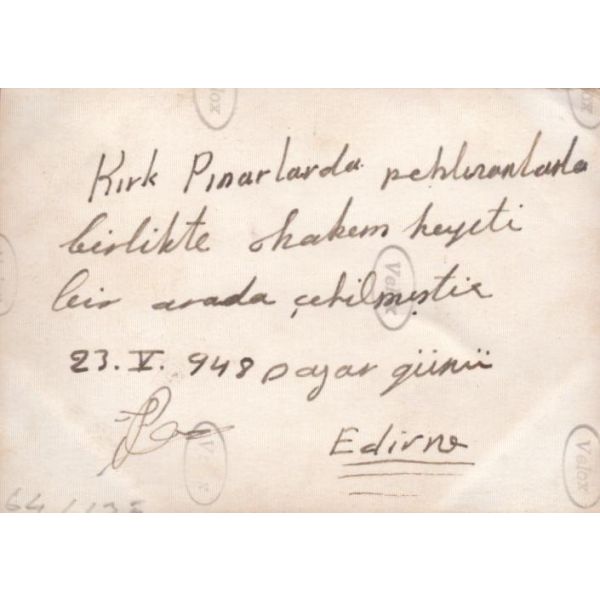 Kırk Pınarlarda pehlivanlarla
birlikte hakem heyeti
bir arada çekilmiştir
23. V. 948 pazar günü
Edirne
64 / 135
Velox
Velox
Velox